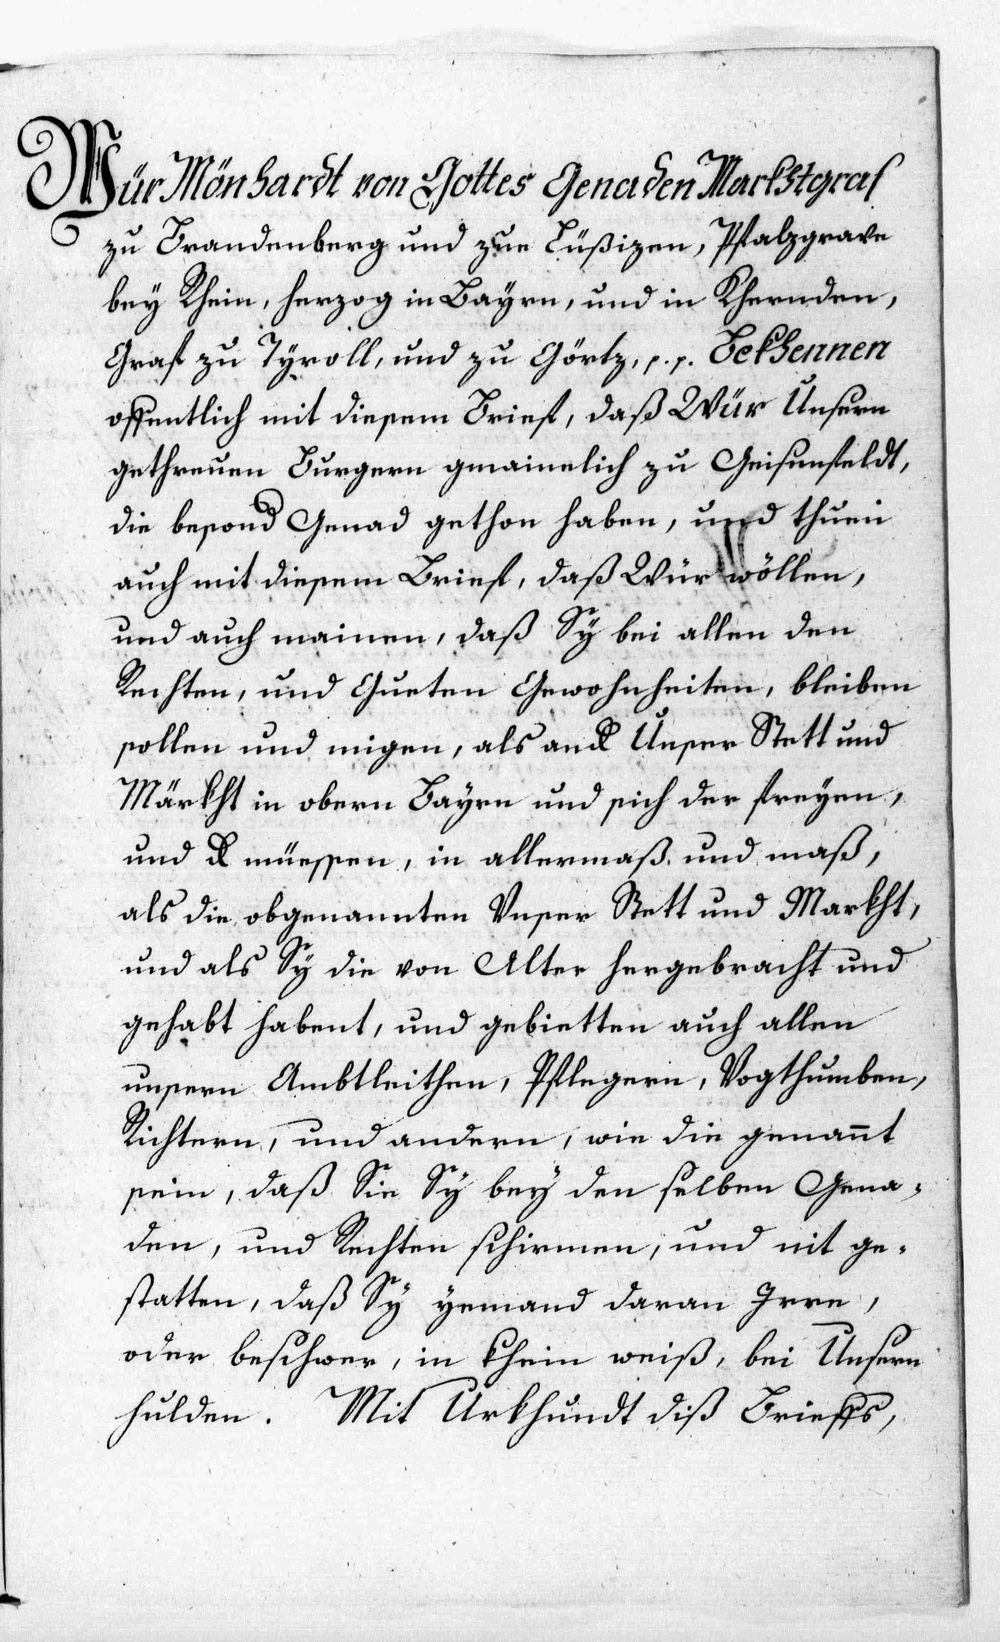 Wür Mönhardt von Gottes Genaden Markhtgraf
zu Brandenberg und zue Lüßizen, Pfalzgrave
bey Rhein, herzog in Bayrn, und in Khernden,
Graf zu Tyroll, und zu Görtz, p. p. Bekhennen
offentlich mit diesem Brief, daß Wür Unsern
gethreuen Burgern gmainelich zu Geisenfeldt,
die besond Genad gethon haben, und thuen
auch mit diesem Brief, daß Wür wöllen,
und auch mainen, daß Sy bei allen den
Rechten, und Gueten Gewohnheiten, bleiben
sollen und migen, als and Unser Stett und
Märkht in obern Bayrn und sich der freyen,
und müessen, in allermaß und maß,
als die obgenannten Vnser Stett und Markht,
und als Sy die von Alter hergebracht und
gehabt habent, und gebietten auch allen
unsern Ambtleithen, Pflegern, Vogthumben,
Richtern, und andern, wie die genant
sein, daß Sie Sy bey den selben Gena-
den, und Rechten schirmen, und nit ge-
statten, daß Sy yemand daran Irre,
oder beschwer, in khein weiß, bei Unsern
hulden. Mit Urkhundt diß Brieffs,